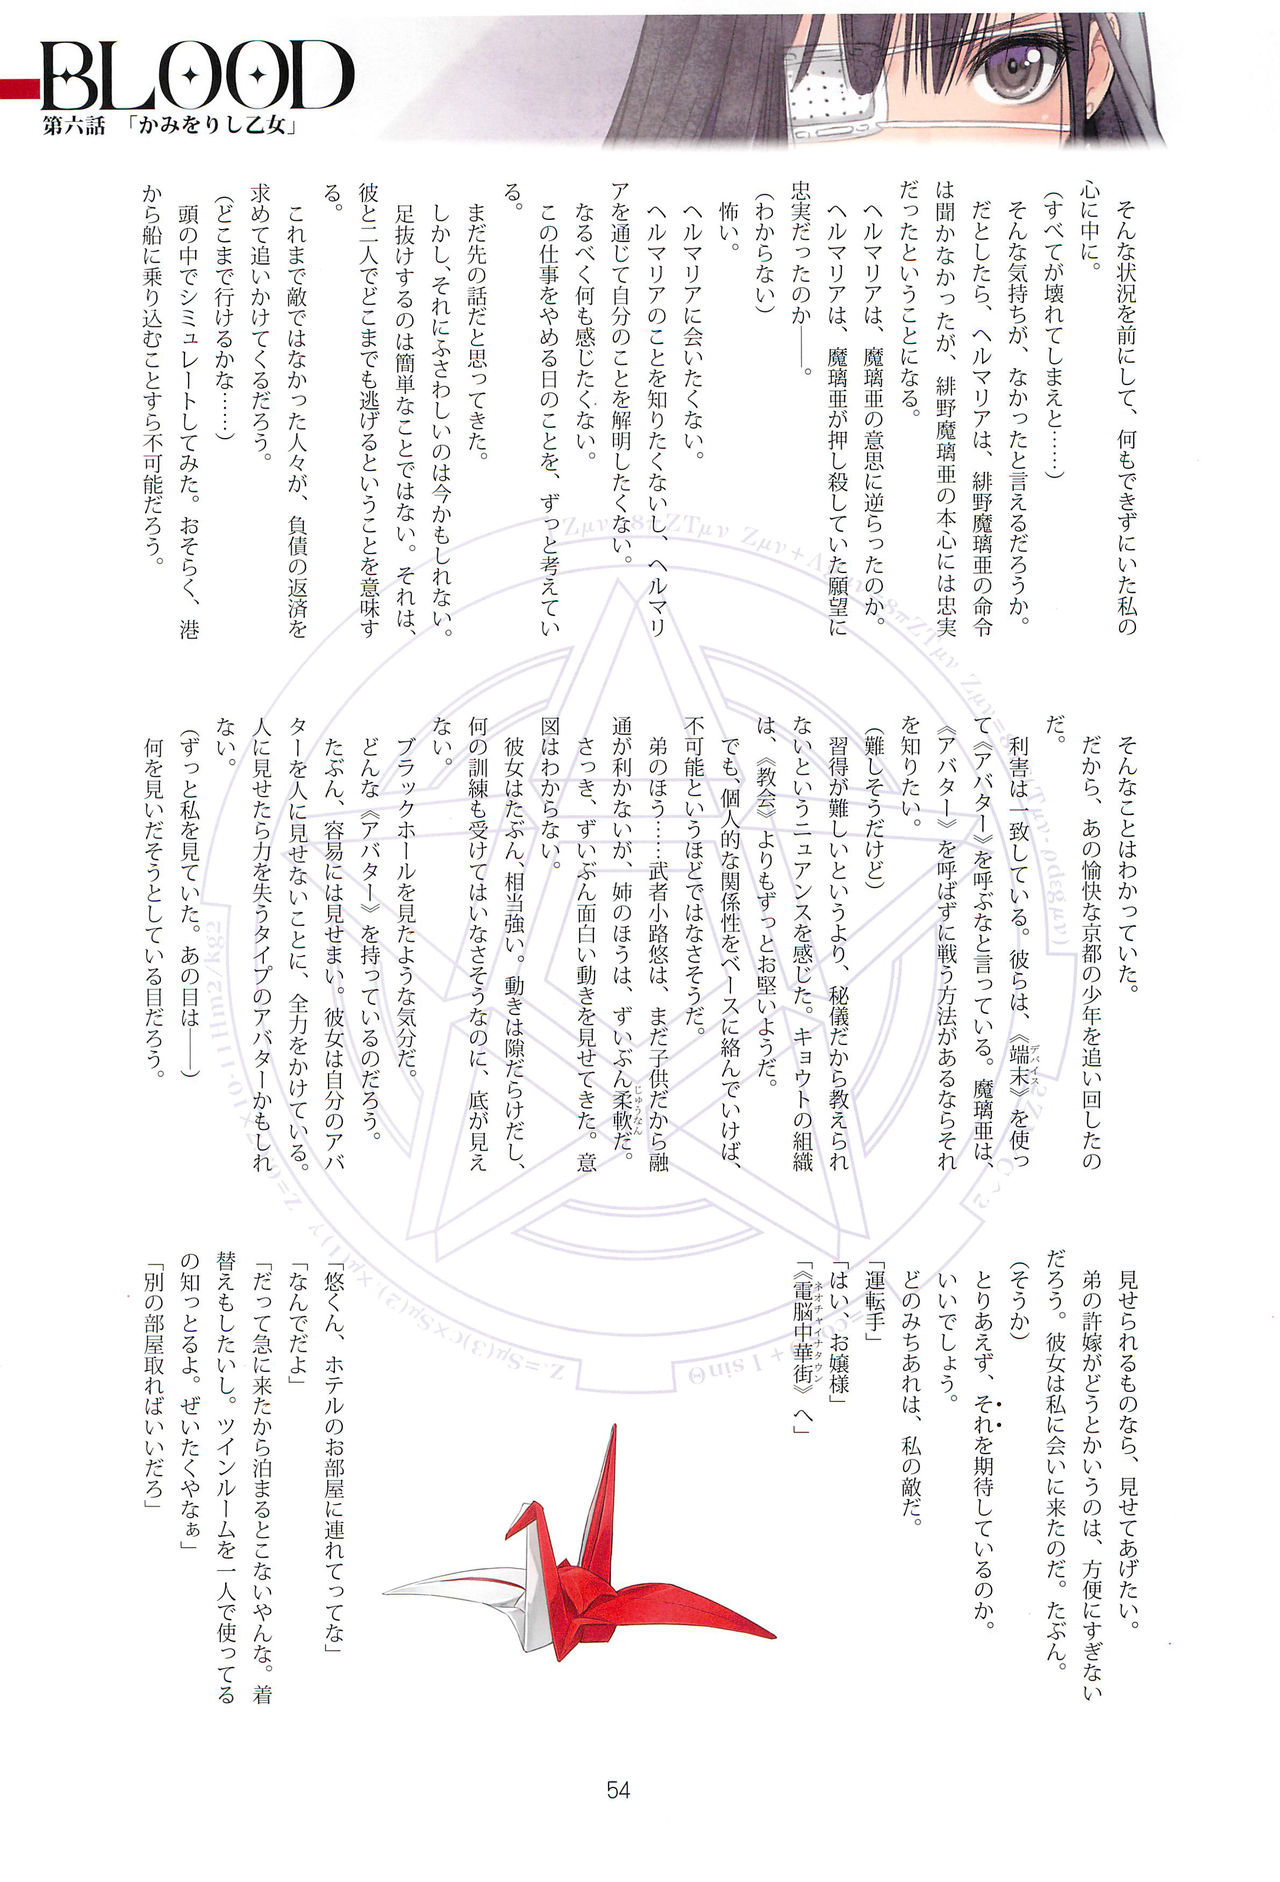 BLOOD
第六話 「かみをりし乙女」
そんな状況を前にして、何もできずにいた私の
心に中に。
(すべてが壊れてしまえと……)
そんな気持ちが、なかったと言えるだろうか。
だとしたら、ヘルマリアは、緋野魔璃亜の命令
は聞かなかったが、緋野魔璃亜の本心には忠実
だったということになる。
ヘルマリアは、魔璃亜の意思に逆らったのか。
ヘルマリアは、魔璃亜が押し殺していた願望に
忠実だったのか――。
(わからない)
怖い。
ヘルマリアに会いたくない。
ヘルマリアのことを知りたくないし、ヘルマリ
アを通じて自分のことを解明したくない。
なるべく何も感じたくない。
この仕事をやめる日のことを、ずっと考えてい
る。
まだ先の話だと思ってきた。
しかし、それにふさわしいのは今かもしれない。
足抜けするのは簡単なことではない。それは、
彼と二人でどこまでも逃げるということを意味す
る。
これまで敵ではなかった人々が、負債の返済を
求めて追いかけてくるだろう。
(どこまで行けるかな……)
頭の中でシミュレートしてみた。おそらく、港
から船に乗り込むことすら不可能だろう。
そんなことはわかっていた。
だから、あの愉快な京都の少年を追い回したの
だ。
利害は一致している。彼らは、《端末》を使っ
デバイス
て《アバター》を呼ぶなと言っている。魔璃亜は、
《アバター》を呼ばずに戦う方法があるならそれ
を知りたい。
(難しそうだけど)
習得が難しいというより、秘儀だから教えられ
ないというニュアンスを感じた。キョウトの組織
は、《教会》よりもずっとお堅いようだ。
でも、個人的な関係性をベースに絡んでいけば、
不可能というほどではなさそうだ。
弟のほう……武者小路悠は、まだ子供だから融
通が利かないが、姉のほうは、ずいぶん柔軟だ。
じゅうなん
さっき、ずいぶん面白い動きを見せてきた。意
図はわからない。
彼女はたぶん、相当強い。動きは隙だらけだし、
何の訓練も受けてはいなさそうなのに、底が見え
ない。
ブラックホールを見たような気分だ。
どんな《アバター》を持っているのだろう。
たぶん、容易には見せまい。彼女は自分のアバ
ターを人に見せないことに、全力をかけている。
人に見せたら力を失うタイプのアバターかもしれ
ない。
(ずっと私を見ていた。あの目は――)
何を見いだそうとしている目だろう。
見せられるものなら、見せてあげたい。
弟の許嫁がどうとかいうのは、方便にすぎない
だろう。彼女は私に会いに来たのだ。たぶん。
(そうか)
とりあえず、それを期待しているのか。
いいでしょう。
どのみちあれは、私の敵だ。
「運転手」
「はい、お嬢様」
「《電脳中華街》へ」
ネオチャイナタウン
「悠くん、ホテルのお部屋に連れてってな」
「なんでだよ」
「だって急に来たから泊まるとこないやんな。着
替えもしたいし。ツインルームを一人で使ってる
の知っとるよ。ぜいたくやなぁ」
「別の部屋取ればいいだろ」
54